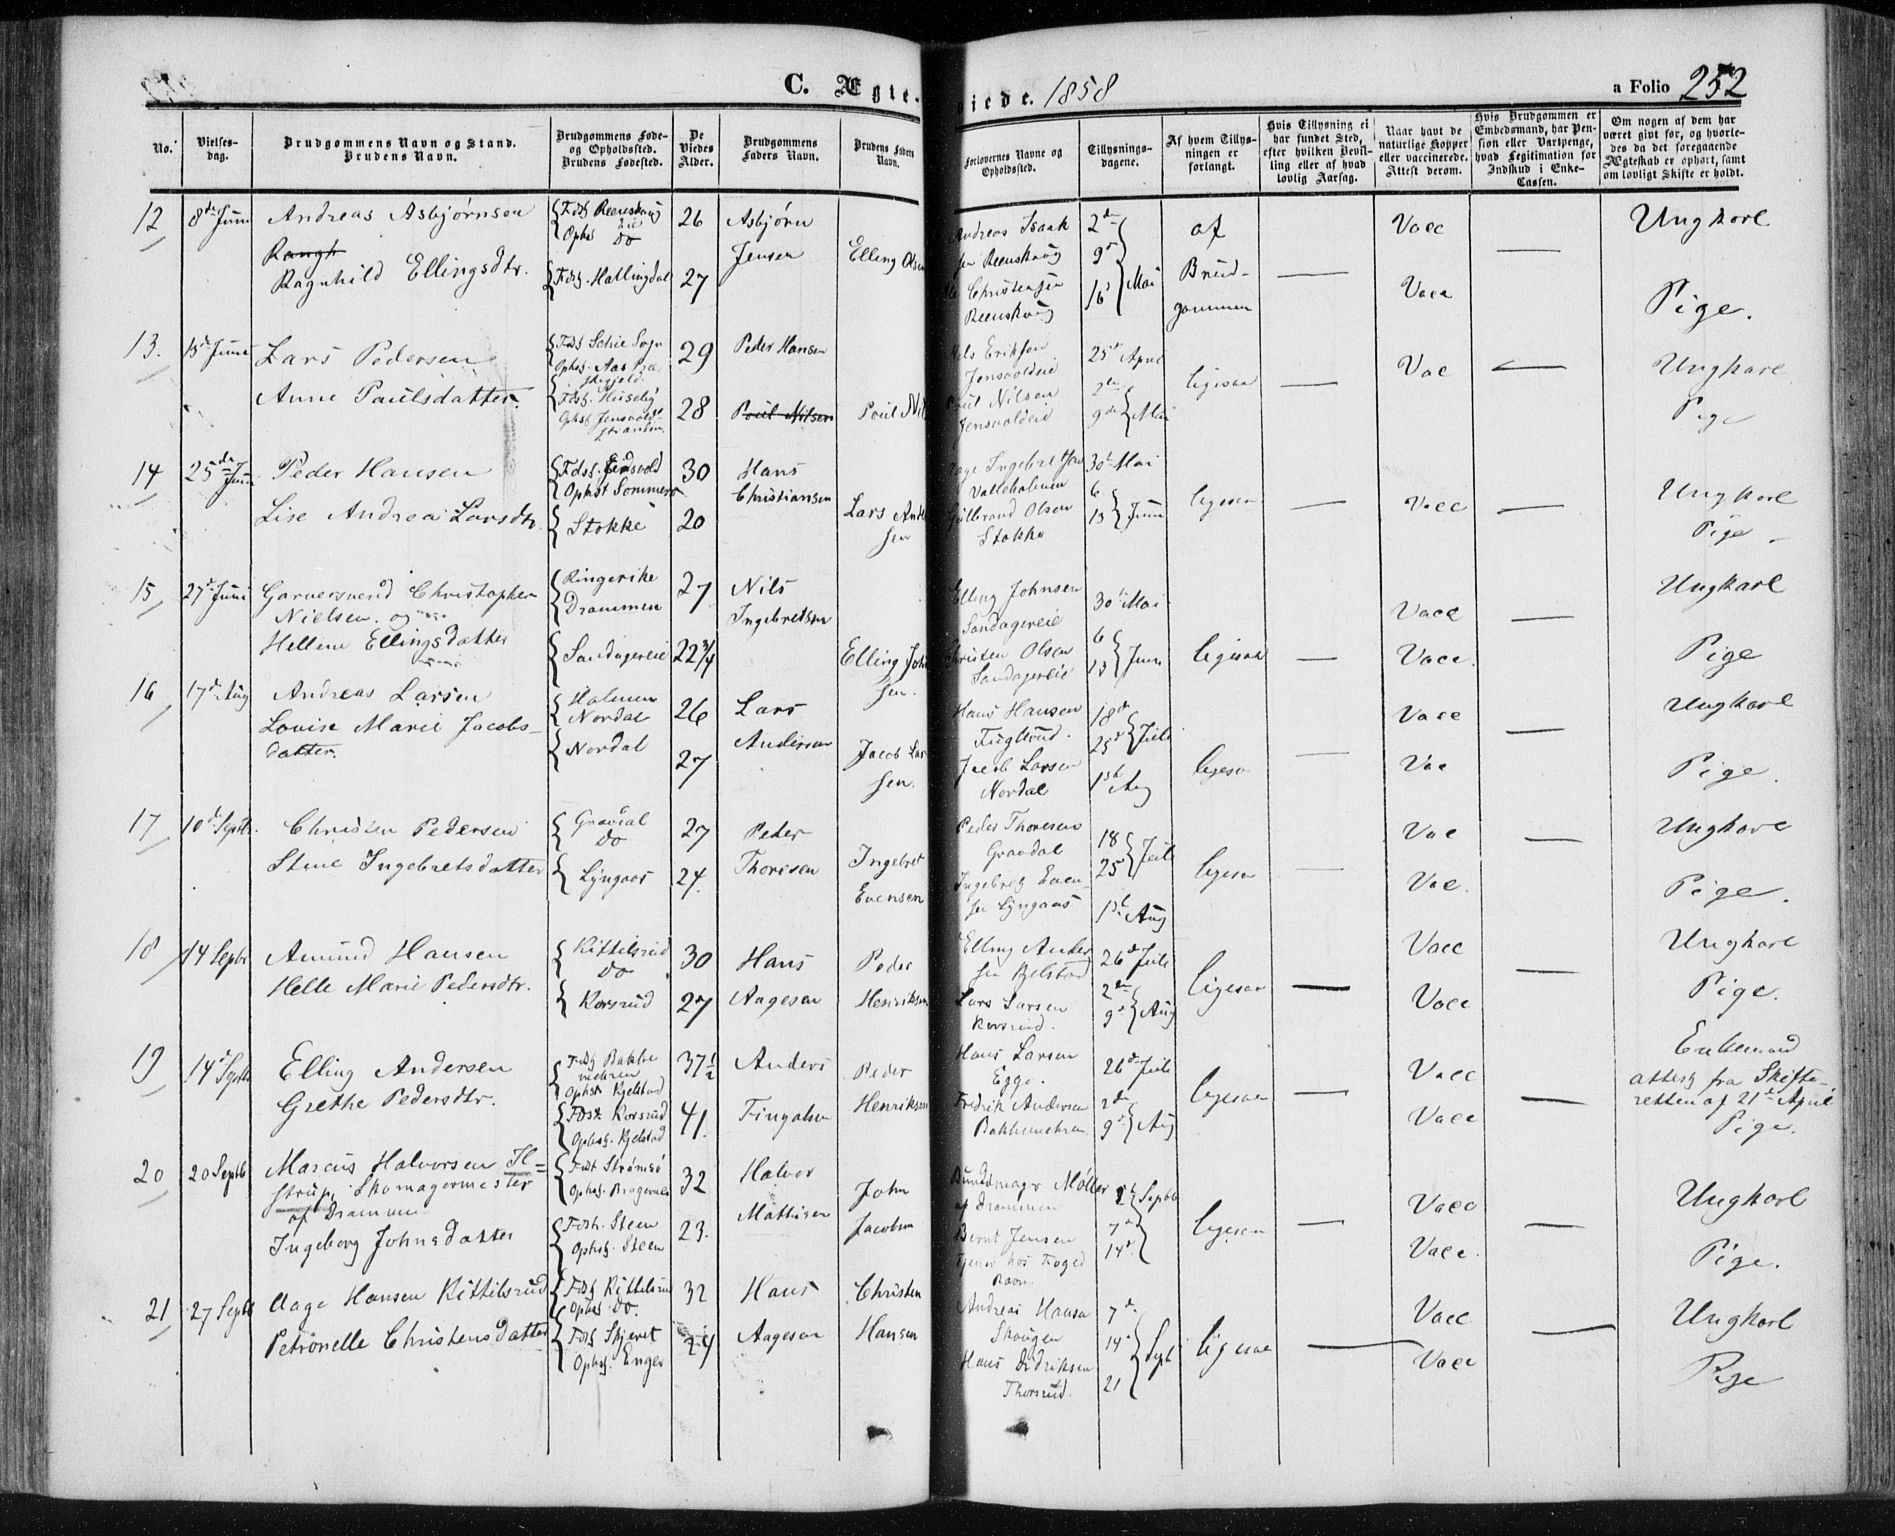 C. Ægteviede. 1858
a Folio 252
No.
Vielses-dag.
Brudgommens Navn og Stand. Brudens Navn.
Brudgommens Føde- og Opholdssted. Brudens Fødested.
De Viedes Alder.
Brudgommens Faders Navn.
Brudens Faders Navn.
Forlovernes Navne og Opholdssted.
Tillysnings-dagene.
Af hvem Tillysningen er forlangt.
Hvis Tillysning ei har fundet Sted, efter hvilken Bevilling eller af hvad lovlig Aarsag.
Naar havt de naturlige Kopper eller vaccinerede. Attest derom.
Hvis Brudgommen er Embedsmand, har Pension eller Vartpenge, hvad Legitimation for Indskud i Enke-Cassen.
Om nogen af dem har været givt før, og hvorledes da det foregaaende Ægteskab er ophørt, samt om lovligt Skifte er holdt.
12 8de Juni Andreas Asbjørnsen Fdst Reenskoug Eie Ophst do 26 Asbjørn Jensen
Rangh
Ragnhild Ellingsdtr. Fdst. Hallingdal 27 Elling Olsen
Andreas Isaaksen Reenskoug
Christensen Reenskoug
2den 9de 16 Mai af Brudgommen Vacc Vacc Ungkarl Pige.
13. Juni Lars Pedersen Fdst Sogn Ophst. 29 Peder Hansen
Anne Paulsdatter. Fdst. Huseby Ophst Jensvold 28 Poul Nilsen Poul Nil
Nils Eriksen Jensvoldeie
Poul Nilsen Jensvoldeie
25de April 2den 9de Mai ligesaa Vac Ungkarl Pige
14 25de Juni Peder Hansen Fdst. Eidsvold Ophst Sommero 30 Hans Christiansen
Lise Andrea Larsdtr. Stokke 20 Lars Andersen
Aage Ingebretsen Vålleholmen
Gulbrand Olsen Stokke
30de Mai 6 13 Juni ligesaa Vacc Ungkarl Pige
15 27de Juni Garversvend Christopher Nielsen og Ringerike Drammen 27 Nils Ingebretsen
Helene Ellingsdatter Sandagereie 22 3/4 Elling Johnsen.
Elling Johnsen Sandagereie
Christen Olsen Sandagereie
30de Mai 6 13 Juni ligesaa Vacc Vacc. Ungkarl Pige
16 17de Aug Andreas Larsen Holmen Nordal 26 Lars Andersen
Lovise Marie Jacobsdatter. Nordal 27 Jacob Larsen.
Hans Hansen Fuglerud.
Jacob Larsen Nordal
18de 25de Juli 1ste Aug ligesaa Vacc Vac Ungkarl Pige.
17 10de Septb. Christen Pedersen Gravdal do 27 Peder Thoresen
Stine Ingebretsdatter Lyngaas 24. Ingebret Evensen
Peder Thoresen Gravdal
Ingebret Evensen Lyngaas
18 25 Juli 1ste Aug ligesaa Vac Vac. Ungkarl Pige.
18 14 Septbr Amund Hansen Kittilsrud do 30 Hans Aagesen
Helle Marie Pedersdtr. Korsrud 27 Peder Henriksen
Elling Andersen Kjelstad
Lars Larsen Korsrud.
26de Juli 2den 9de Aug ligesaa Vacc Vacc Ungkarl Pige.
19 14de Septbr Elling Andersen Fdst Bakkemehren Ophst Kjelstad 37 1/2 Anders Fingalsen
Grethe Pedersdtr. Fdst Korsrud Ophst. Kjelstad 41. Peder Henriksen
Hans Larsen Egge.
Fredrik Andersen Bakkemehren
26de Juli 2den 9de Aug ligesaa Vacc Vacc Enkemand attest fra Skifteretten af 21de April Pige.
20 20 Septb Marcus Halvorsen Skomagermester af Drammen Fdst Strømsø Ophst. Bragernes 32 Halvor Mathisen
Ingeborg Johnsdatter Fdst. Steen Ophst. Steen 23. John Jacobsen
Buntdmager Møller af Drammen
Bernt Jensen tjener hos Foged Ravn.
Septb 7de 14de ligesaa Vacc Vacc. Ungkarl Pige.
21 27 Septb Aage Hansen Kittilsrud Fdst Kittilsrud Ophst. do. 32 Hans Aagesen
Petronelle Christensdatter Fdst Skjeret Ophst. Enger 24 Christen Hansen
Andreas Hansen Skougen
Hans Didriksen Thorsrud.
7de 14de 21 Sept ligesaa Vacc Vacc Ungkarl Pige